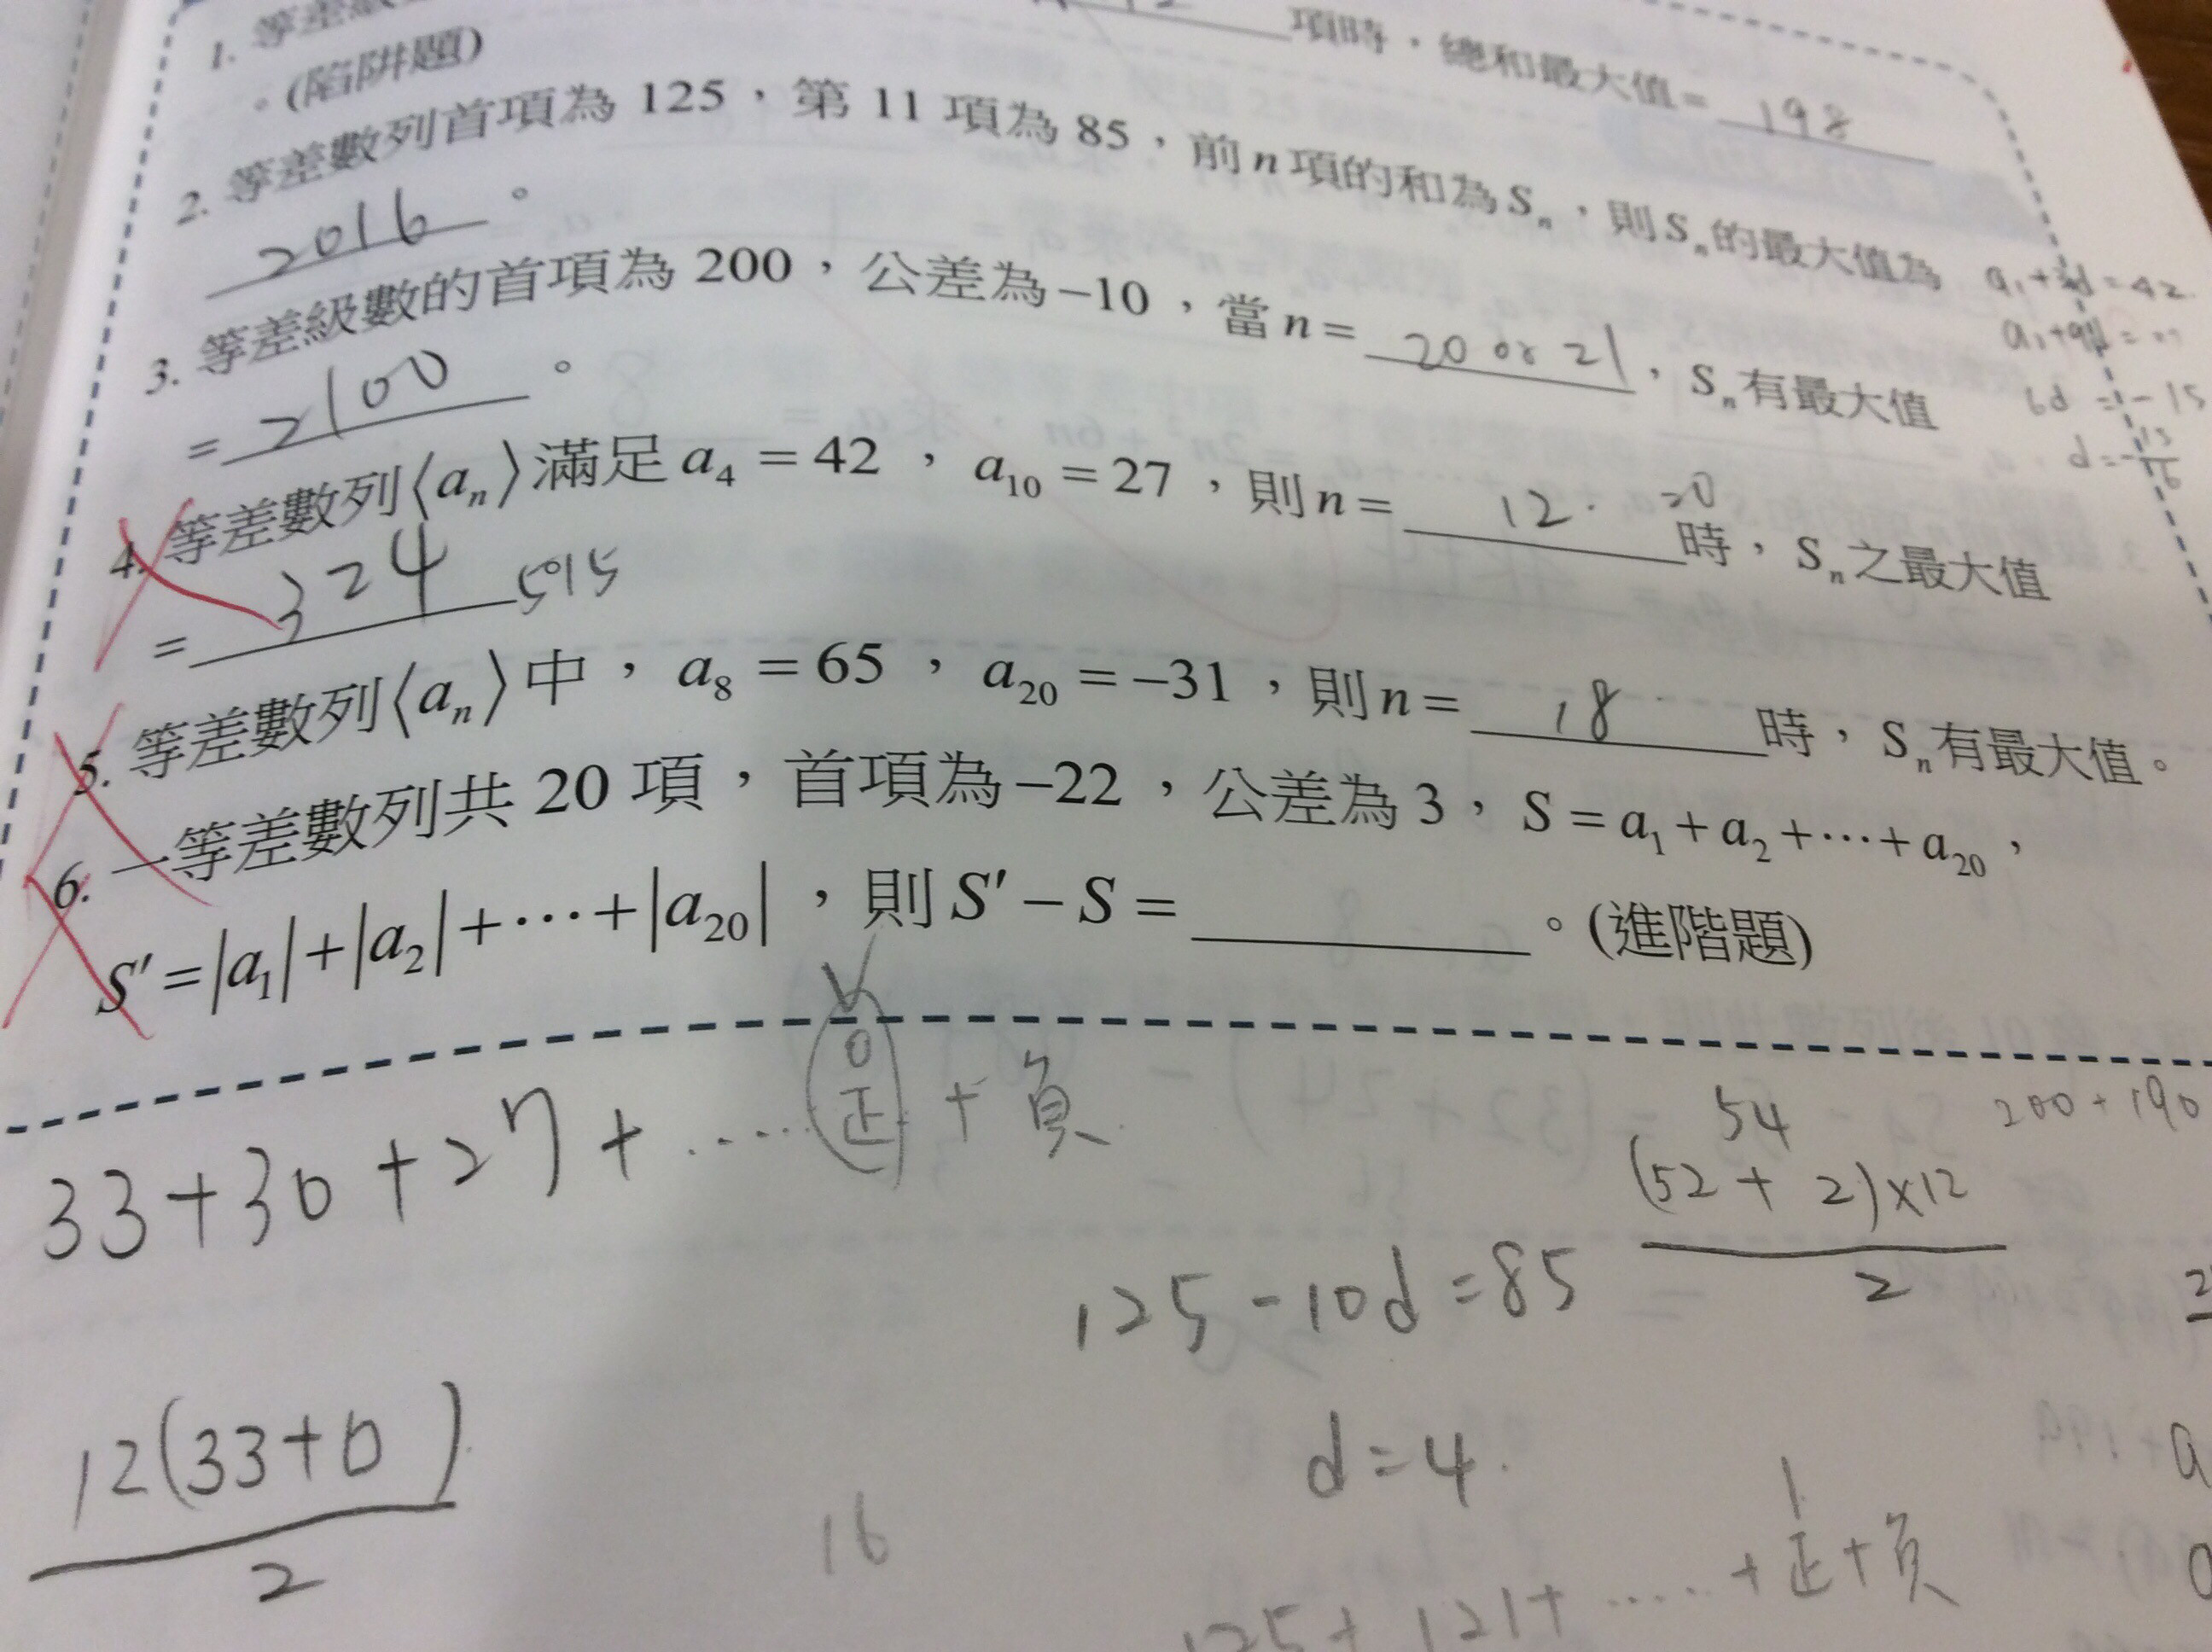 1. 等差級
項時,總和最大值= 198
。(陷阱題)
2. 等差數列首項為 125,第 11 項為 85,前 n 項的和為 Sₙ,則 Sₙ 的最大值為
2016 。
3. 等差級數的首項為 200,公差為 −10,當 n = 20 or 21 , Sₙ 有最大值
= 2100 。
4. 等差數列⟨aₙ⟩滿足 a₄ = 42 , a₁₀ = 27 ,則 n = 12. 20 時, Sₙ 之最大值
= 324 50|5
5. 等差數列⟨aₙ⟩中, a₈ = 65 , a₂₀ = −31 ,則 n = 18 時, Sₙ 有最大值。
6. 一等差數列共 20 項,首項為 −22 ,公差為 3, S = a₁ + a₂ + ⋯ + a₂₀ ,
S′ = |a₁| + |a₂| + ⋯ + |a₂₀| ,則 S′ − S = ______ 。(進階題)
6d = -15
33+30+27+ ..... 0 正 + 負
54
(52 + 2)×12
2
200 + 190
125 - 10d = 85
d = 4.
12(33+0)
2
16
125 + 121 + ..... + 1 正 + 負